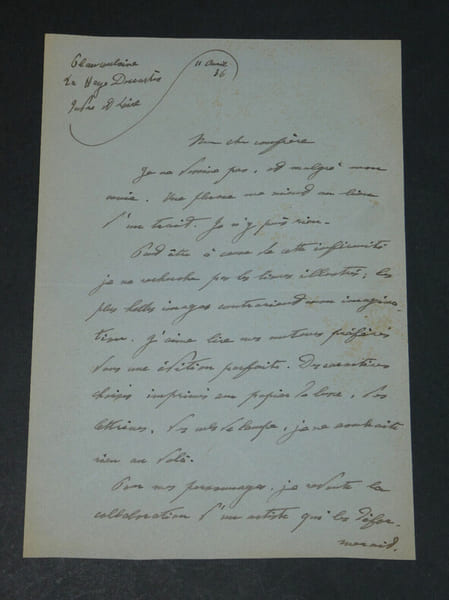 La Haye Descartes
Indre et Loire
11 avril
36
Mon cher confrère
Je ne dessine pas, et malgré mon
envie. Une plume me vient au lieu
d'un trait. Je n'y puis rien.
Peut être à cause de cette infirmité
je ne recherche pas les livres illustrés; les
plus belles images contrarient mon imagina-
tion. J'aime lire mes auteurs préférés
dans une édition parfaite. Des caractères
choisis imprimés sur papier de luxe, des
lettrines, des culs de lampe, je ne souhaite
rien au delà.
Pour mes personnages, je redoute la
collaboration d'un artiste qui les défor-
merait.